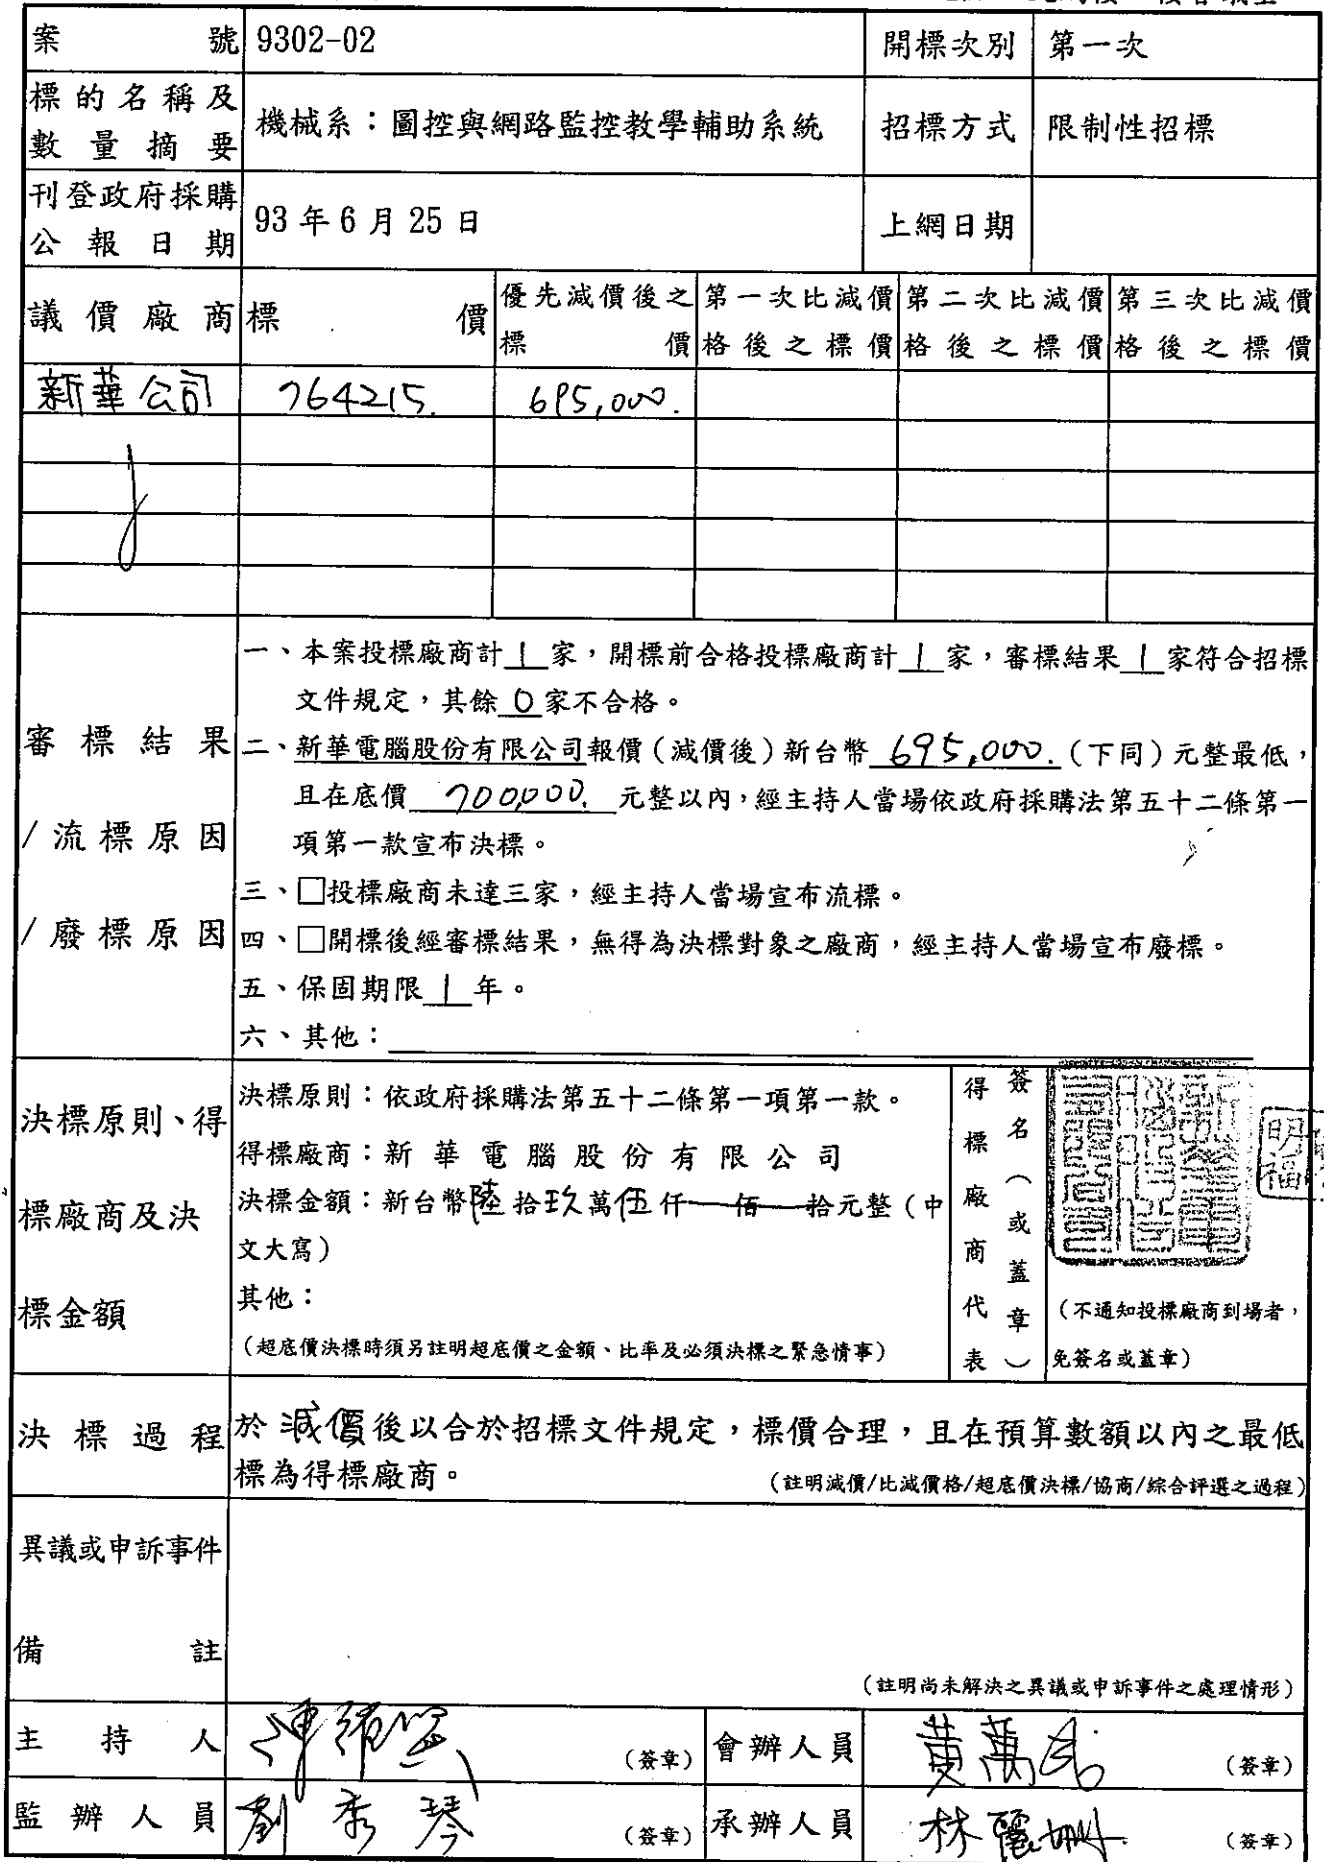 案號 9302-02 開標次別 第一次
標的名稱及
數量摘要 機械系：圖控與網路監控教學輔助系統 招標方式 限制性招標
刊登政府採購
公報日期 93年6月25日 上網日期
議價廠商 標價 優先減價後之標價 第一次比減價格後之標價 第二次比減價格後之標價 第三次比減價格後之標價
新華公司 764215. 695,000.
審標結果
/流標原因
/廢標原因
一、本案投標廠商計 1 家，開標前合格投標廠商計 1 家，審標結果 1 家符合招標
文件規定，其餘 0 家不合格。
二、新華電腦股份有限公司報價（減價後）新台幣 695,000. （下同）元整最低，
且在底價 700,000. 元整以內，經主持人當場依政府採購法第五十二條第一
項第一款宣布決標。
三、□投標廠商未達三家，經主持人當場宣布流標。
四、□開標後經審標結果，無得為決標對象之廠商，經主持人當場宣布廢標。
五、保固期限 1 年。
六、其他：
決標原則、得
標廠商及決
標金額
決標原則：依政府採購法第五十二條第一項第一款。
得標廠商：新華電腦股份有限公司
決標金額：新台幣陸拾玖萬伍仟佰拾元整（中
文大寫）
其他：
（超底價決標時須另註明超底價之金額、比率及必須決標之緊急情事）
得標廠商代表
簽名（或蓋章）
明福
（不通知投標廠商到場者，
免簽名或蓋章）
決標過程 於減價後以合於招標文件規定，標價合理，且在預算數額以內之最低
標為得標廠商。
（註明減價/比減價格/超底價決標/協商/綜合評選之過程）
異議或申訴事件
備註
（註明尚未解決之異議或申訴事件之處理情形）
主持人 （簽章） 會辦人員 （簽章）
監辦人員 劉秀琴 （簽章） 承辦人員 林麗珊 （簽章）